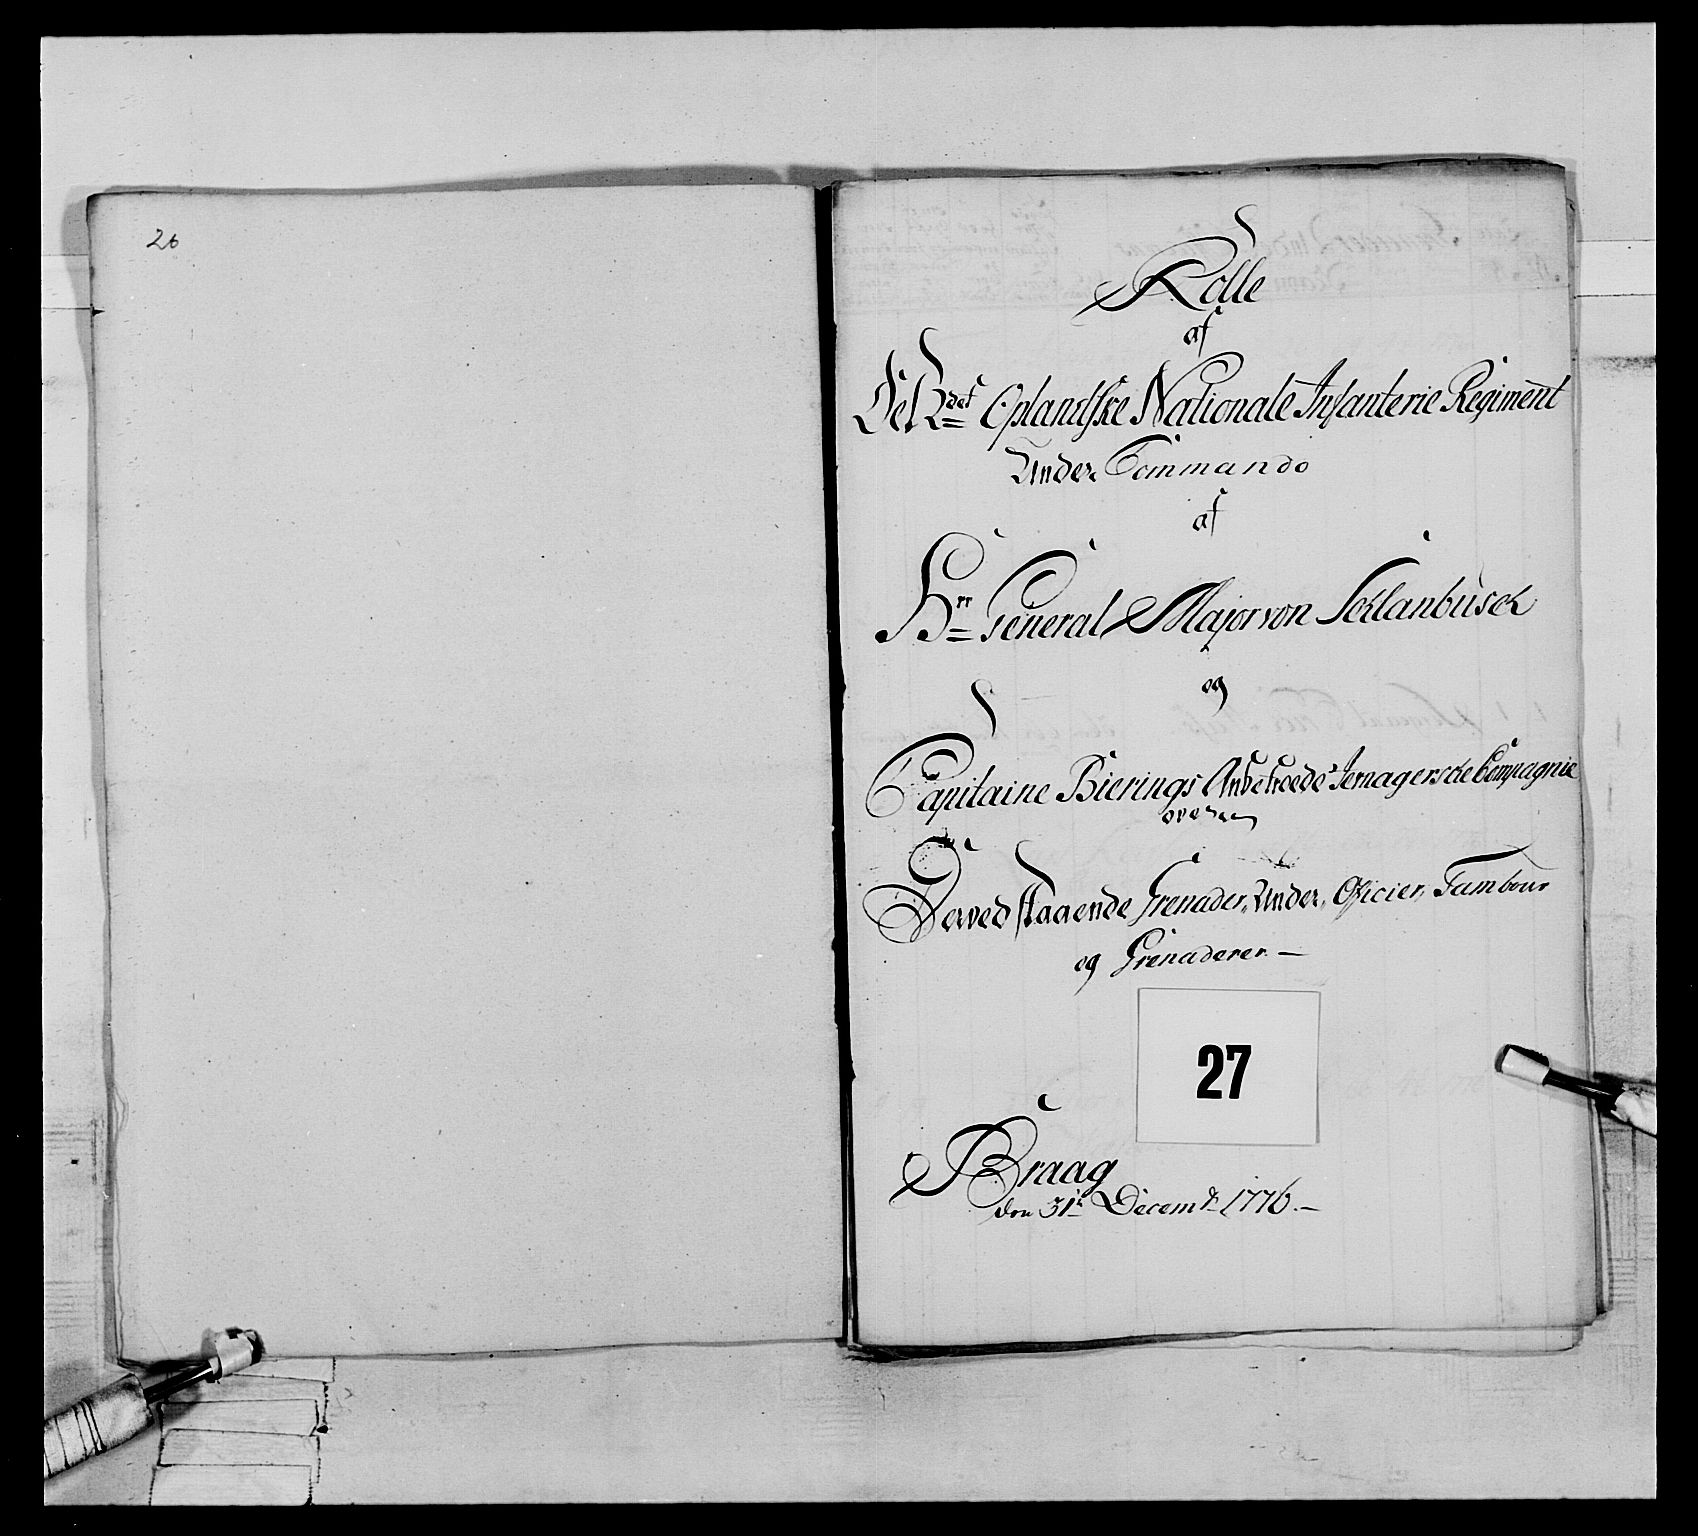 26
Rolle
af
Det 2det Oplandske Nationale Infanterie Regiment
Under Commando
af
Hrr General Major von Schlanbusch
og
Capitaine Bierings Jemagerske Compagnie
over
Derved staaende Grenader, Under, Oficier, Tambour
og Grenaderer. —
27
Braag
den 31te Decembr 1776. —